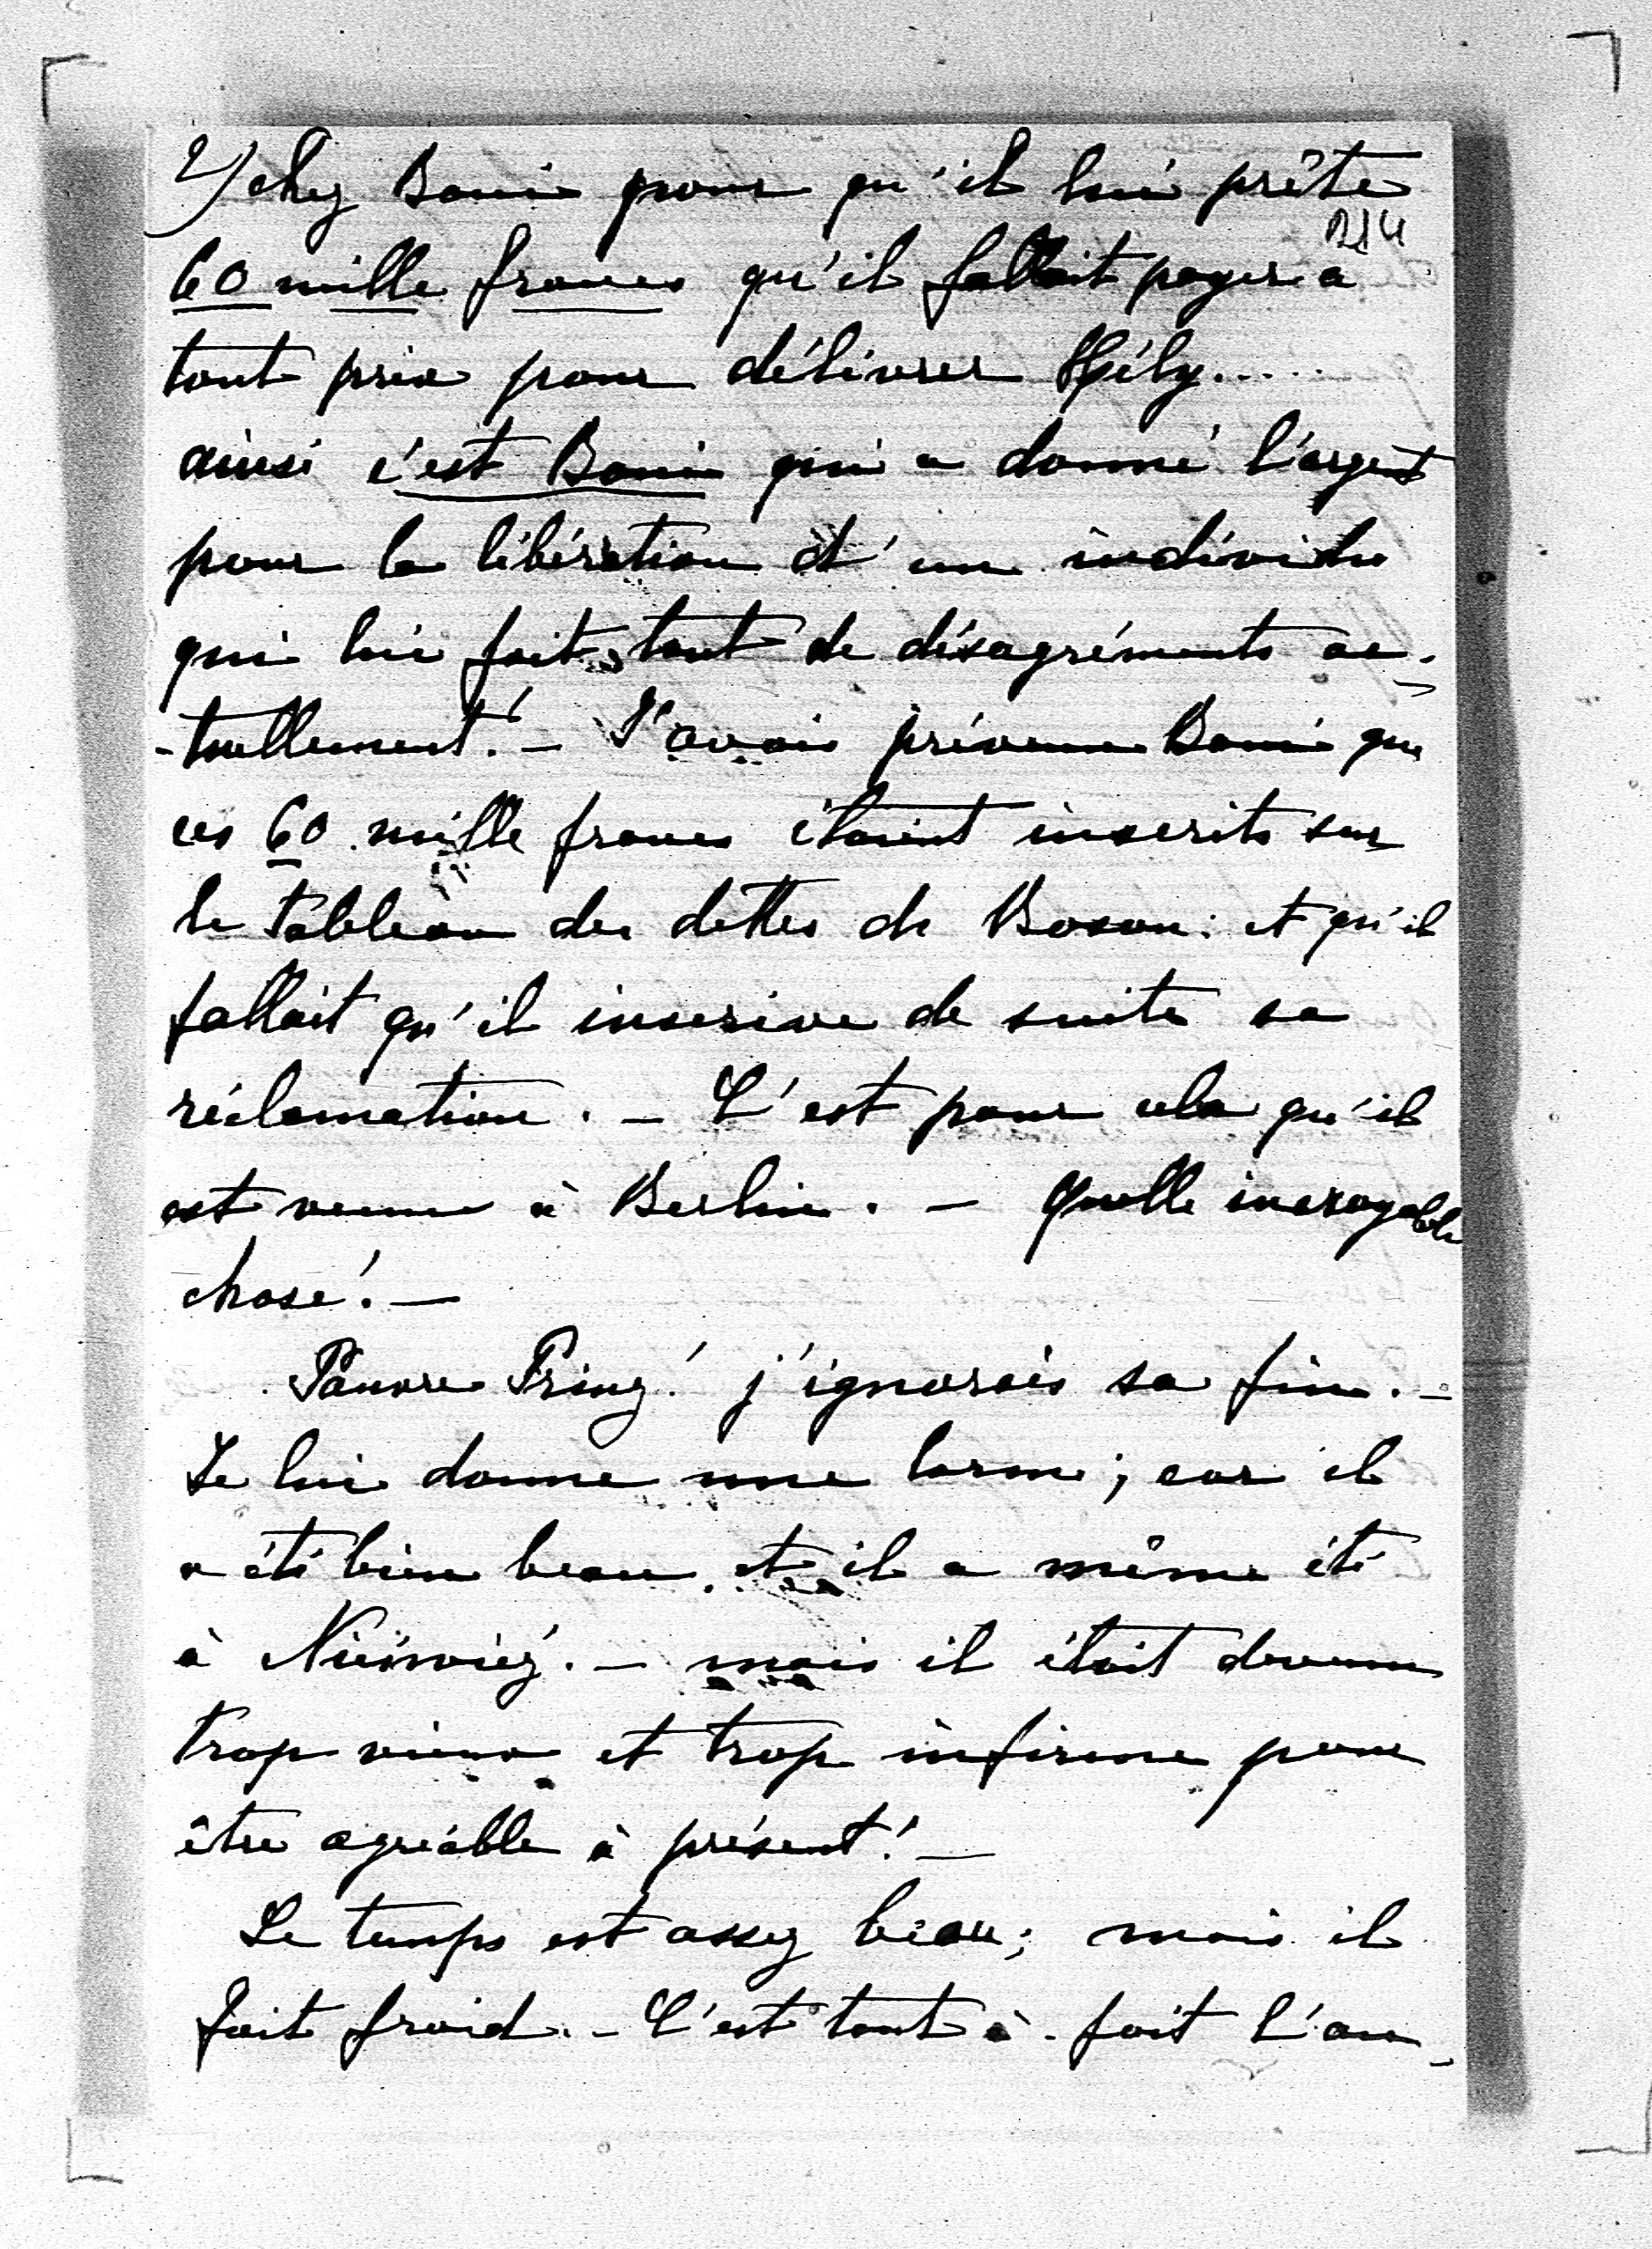 2) chez Boni pour qu'il lui prête
214
60 mille francs qu'il fallait payer à
tout prix pour délivrer Hély.....
ainsi c'est Boni qui a donné l'argent
pour la libération d'un individu
qui lui fait tant de désagréments ac-
-tuellement! – J'avais prévenu Boni que
ces 60 mille francs étaient inscrits sur
le tableau des dettes de Boson: et qu'il
fallait qu'il inscrive de suite sa
réclamation. – C'est pour cela qu'il
est venu à Berlin. – Quelle incroyable
chose! –
Pauvre Prinz! j'ignorais sa fin. –
Je lui donne une larme; car il
a été bien beau, et il a même été
à Nieśwież. – mais il était devenu
trop vieux et trop infirme pour
être agréable à présent! –
Le temps est assez beau; mais il
fait froid. – C'est tout à fait l'au-